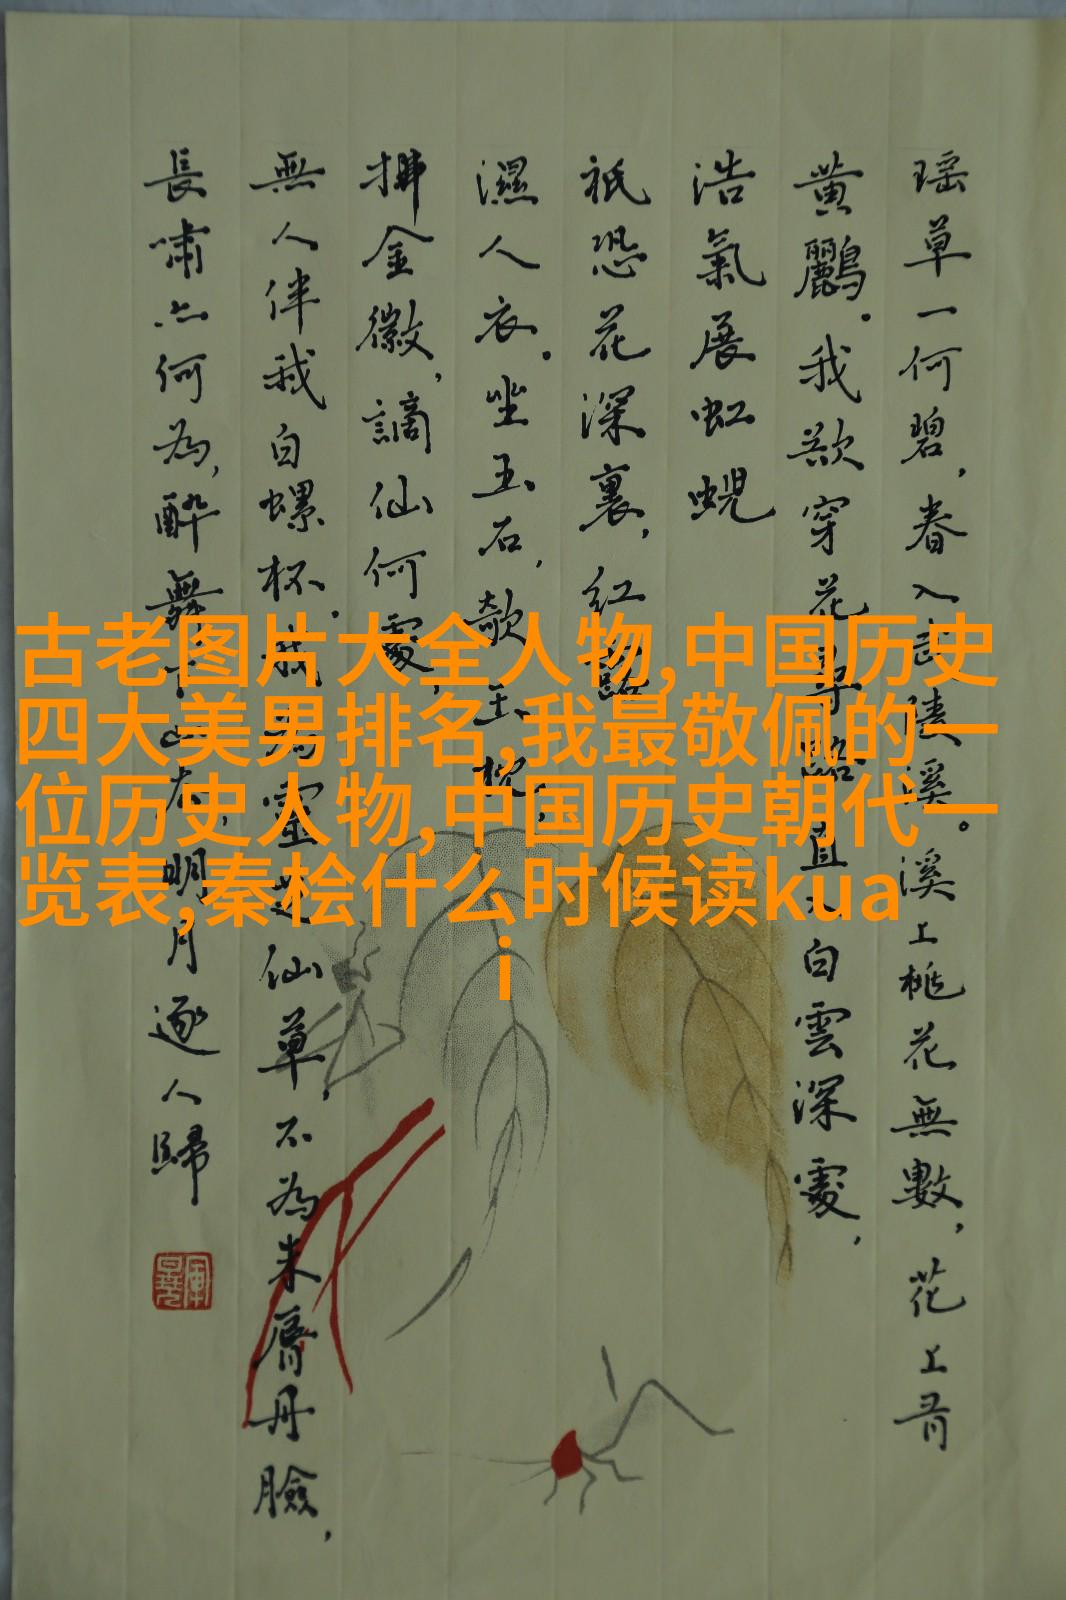 瑶草一何碧，春入武陵溪。溪上桃花無數，花上有
黄鸝。我欲穿花尋路，直入白雲深處，
浩氣展虹蜺
祇恐花深裏，紅露
濕人衣。坐玉石，欹玉枕，
拂金徽，謫仙何處，
無人伴我白螺杯。我為靈芝仙草，不為朱脣丹臉，
長嘯亦何為，醉舞下山去，明月逐人歸
古老图片大全人物,中国历史
四大美男排名,我最敬佩的一
位历史人物,中国历史朝代一
览表,秦桧什么时候读kua
i